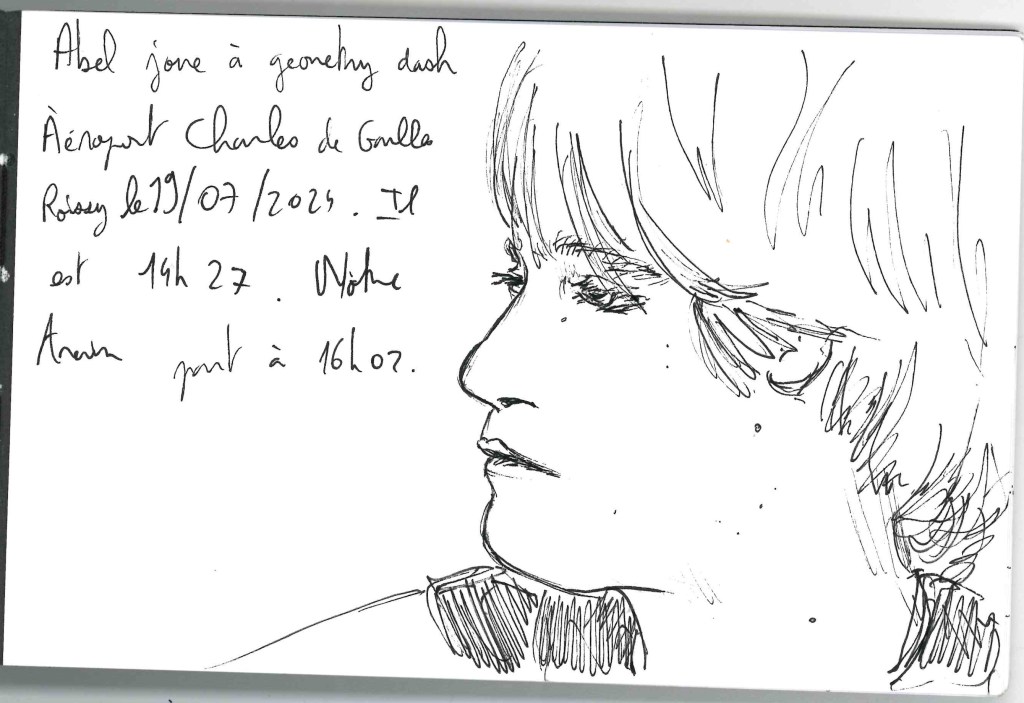 Abel joue à geometry dash
Àéroport Charles de Gaulle
Roissy le 19/07/2024. Il
est 14h 27. Nôtre
Avion part à 16h02.